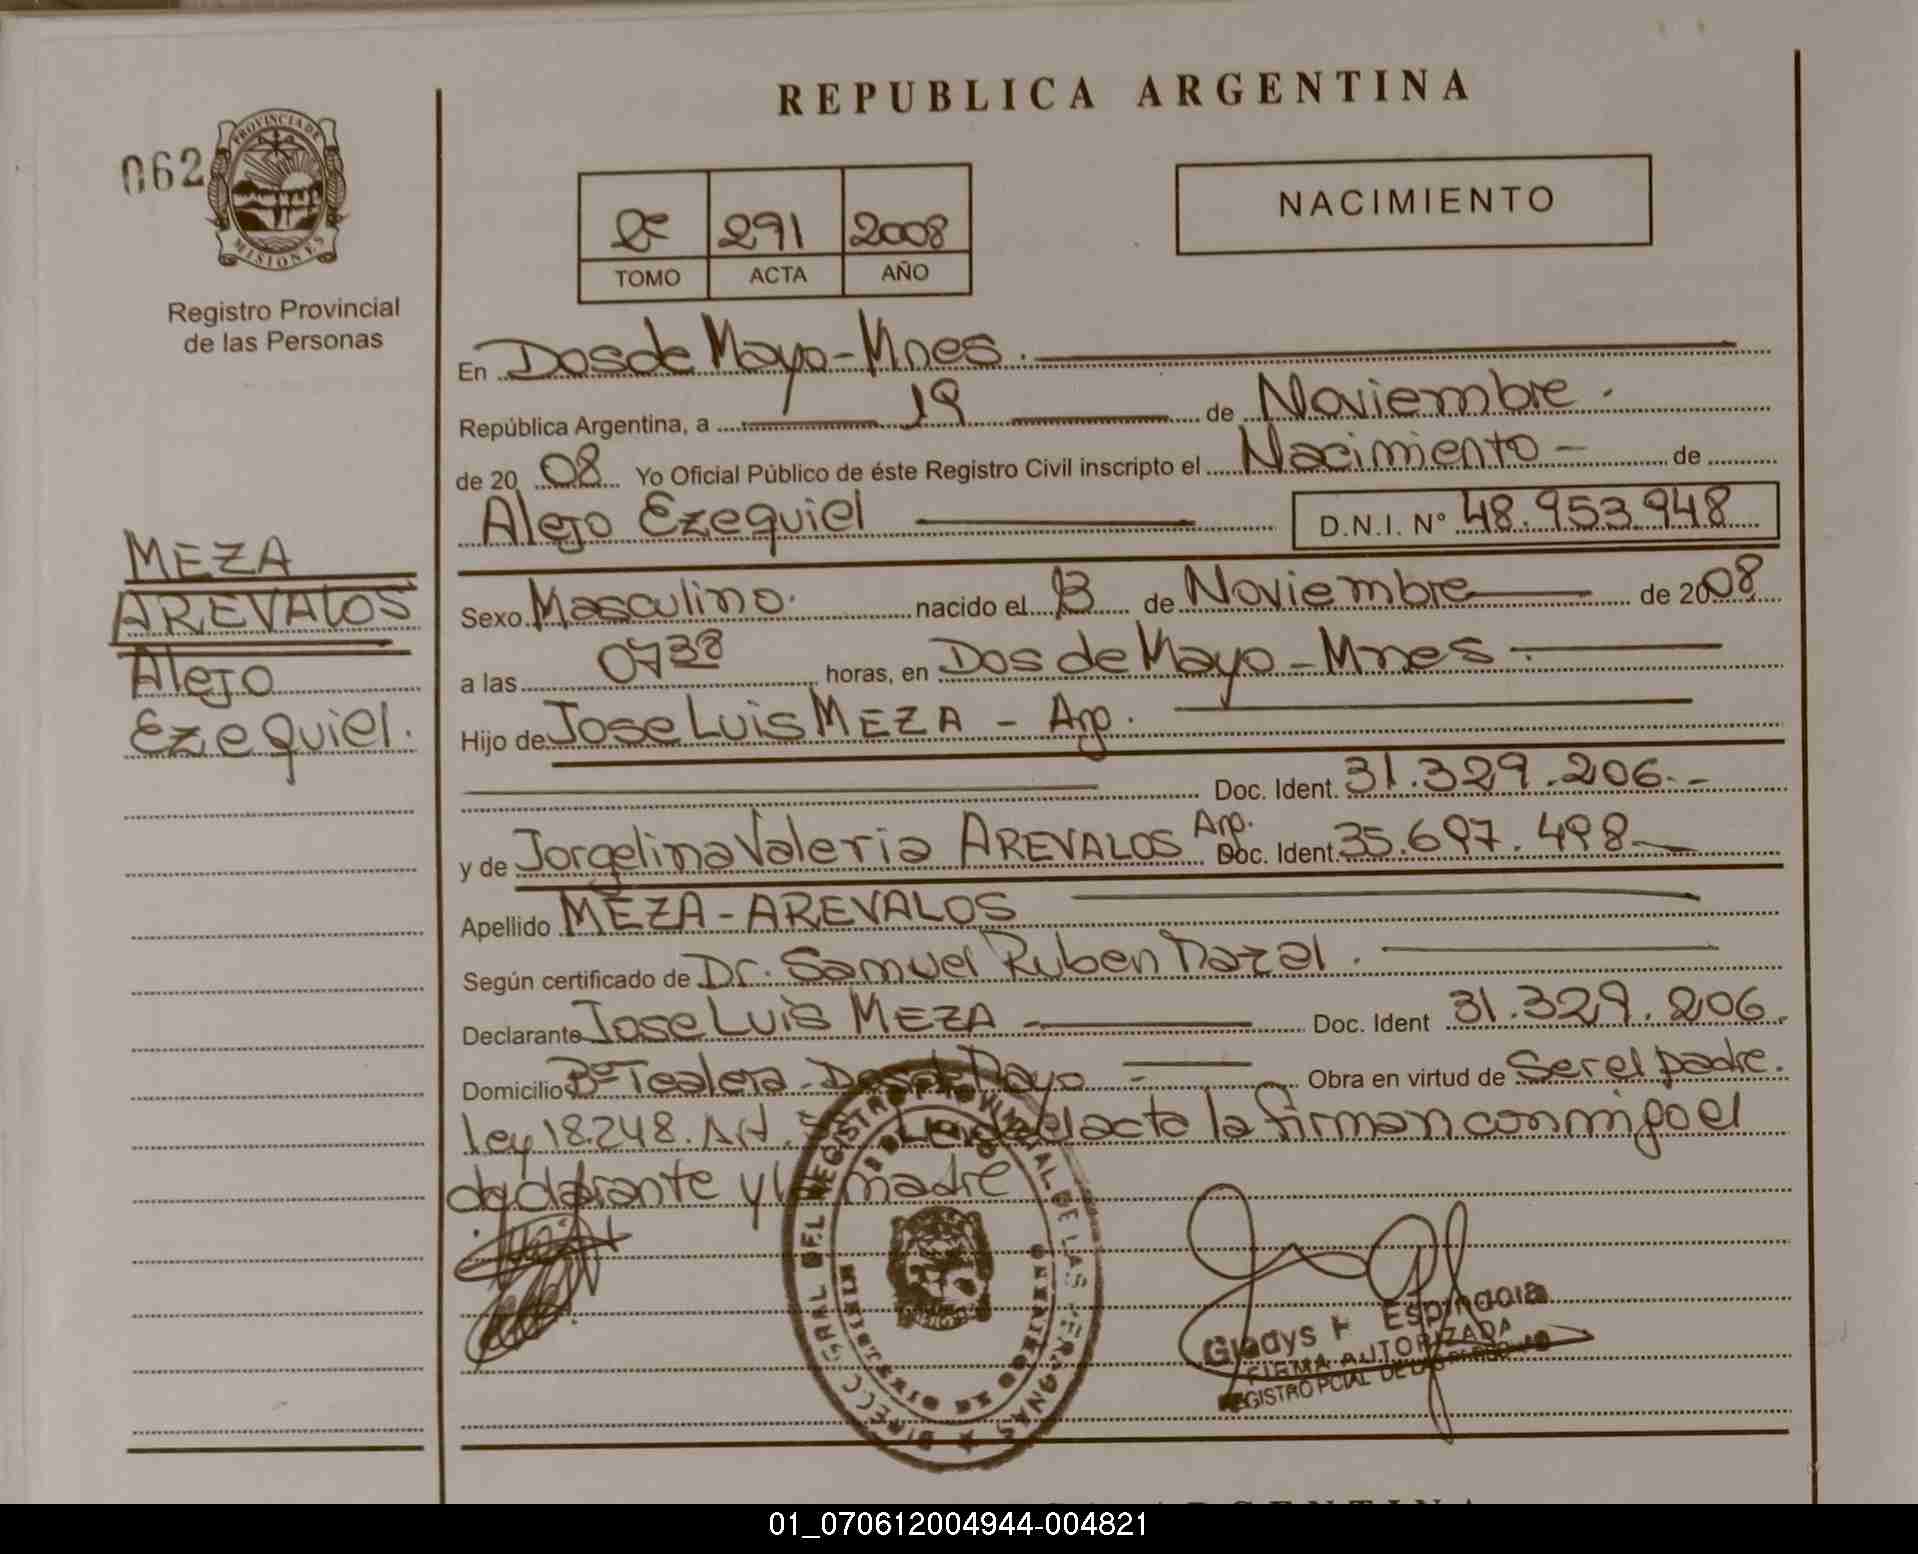 REPUBLICA ARGENTINA
062
PROVINCIA DE MISIONES
Registro Provincial
de las Personas
2º 291 2008
TOMO ACTA AÑO
NACIMIENTO
En Dos de Mayo - Mnes.
República Argentina, a 19 de Noviembre.
de 2008 Yo Oficial Público de éste Registro Civil inscripto el Nacimiento - de
Alejo Ezequiel D.N.I. Nº 48.953.948
MEZA
AREVALOS
Alejo
Ezequiel.
Sexo Masculino. nacido el 13 de Noviembre de 2008
a las 0738 horas, en Dos de Mayo - Mnes -
Hijo de Jose Luis MEZA - Arg.
Doc. Ident. 31.329.206.-
y de Jorgelina Valeria AREVALOS Arg. Doc. Ident. 35.697.498
Apellido MEZA - AREVALOS
Según certificado de Dr. Samuel Ruben
Declarante Jose Luis MEZA - Doc. Ident 31.329.206.
Domicilio Bº Tealera - Dos de Mayo - Obra en virtud de Ser el padre.
Ley 18.248. Art. Leida el acta la firman conmigo el
declarante y la madre
DIRECC. GRAL DEL REGISTRO PROVINCIAL DE LAS PERSONAS
Gladys F. Espindola
FIRMA AUTORIZADA
REGISTRO PCIAL DE LAS PERSONAS
ARGENTINA
01_070612004944-004821